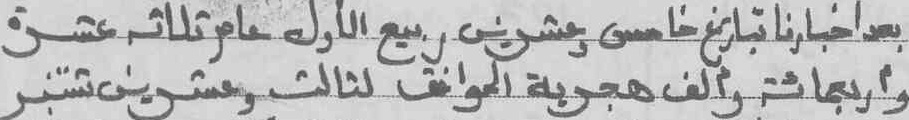 بعد اخبارنا بتاريخ خامس وعشرين ربيع الاول عام ثلاثة عشرة
واربعمائة والف هجرية الموافق لثالث وعشرين شتنبر